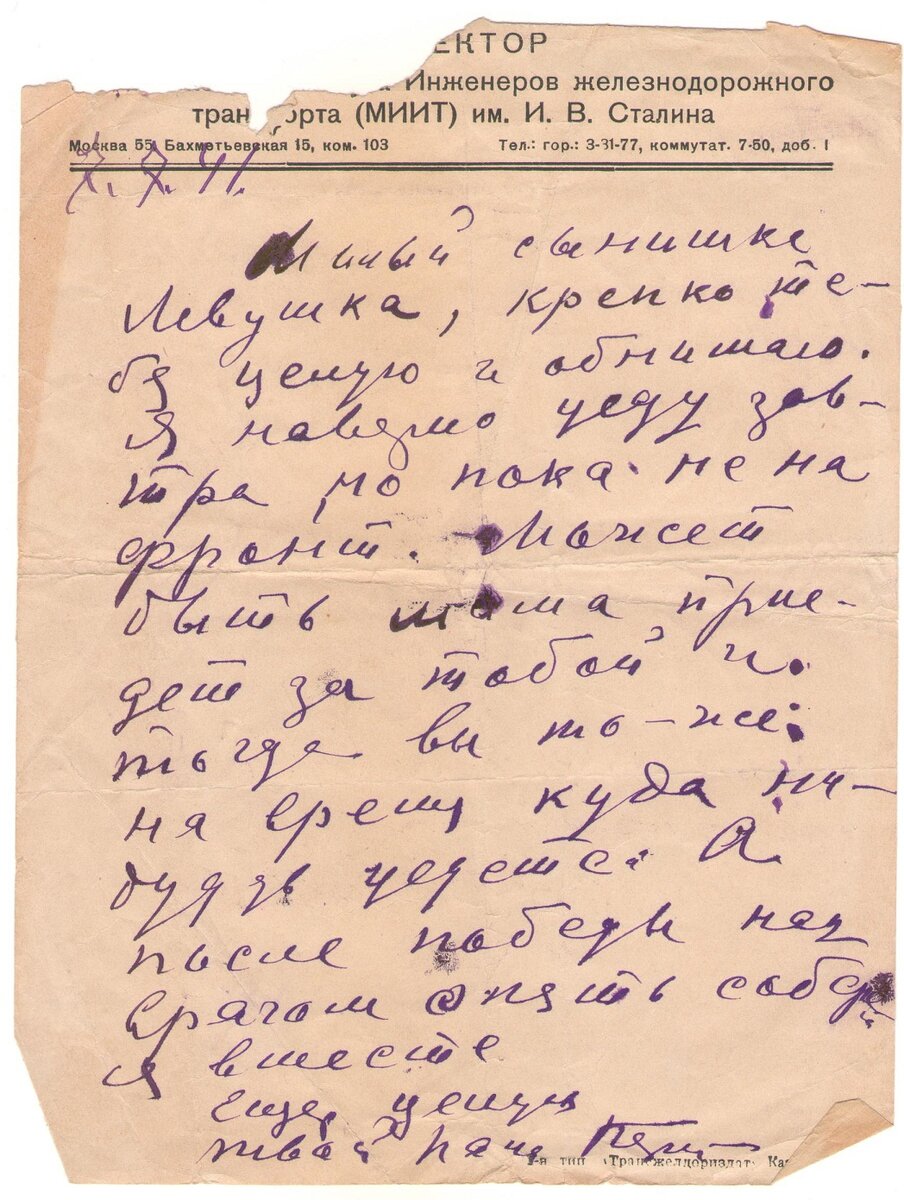 ЕКТОР
Инженеров железнодорожного
транспорта (МИИТ) им. И. В. Сталина
Москва 55, Бахметьевская 15, ком. 103 Тел.: гор.: 3-31-77, коммутат. 7-50, доб. 1
7. 7. 41.
Милый сынишке
Левушка, крепко те-
бя целую и обнимаю.
Я наверно уеду зав-
тра, но пока не на
фронт. Может
быть мама прие-
дет за тобой и
тогда вы то-же
на время куда ни-
будь уедете. А
после победы над
врагом опять собер
я вместе
еще целую
твой папа
1-я тип. „Трансжелдориздат“